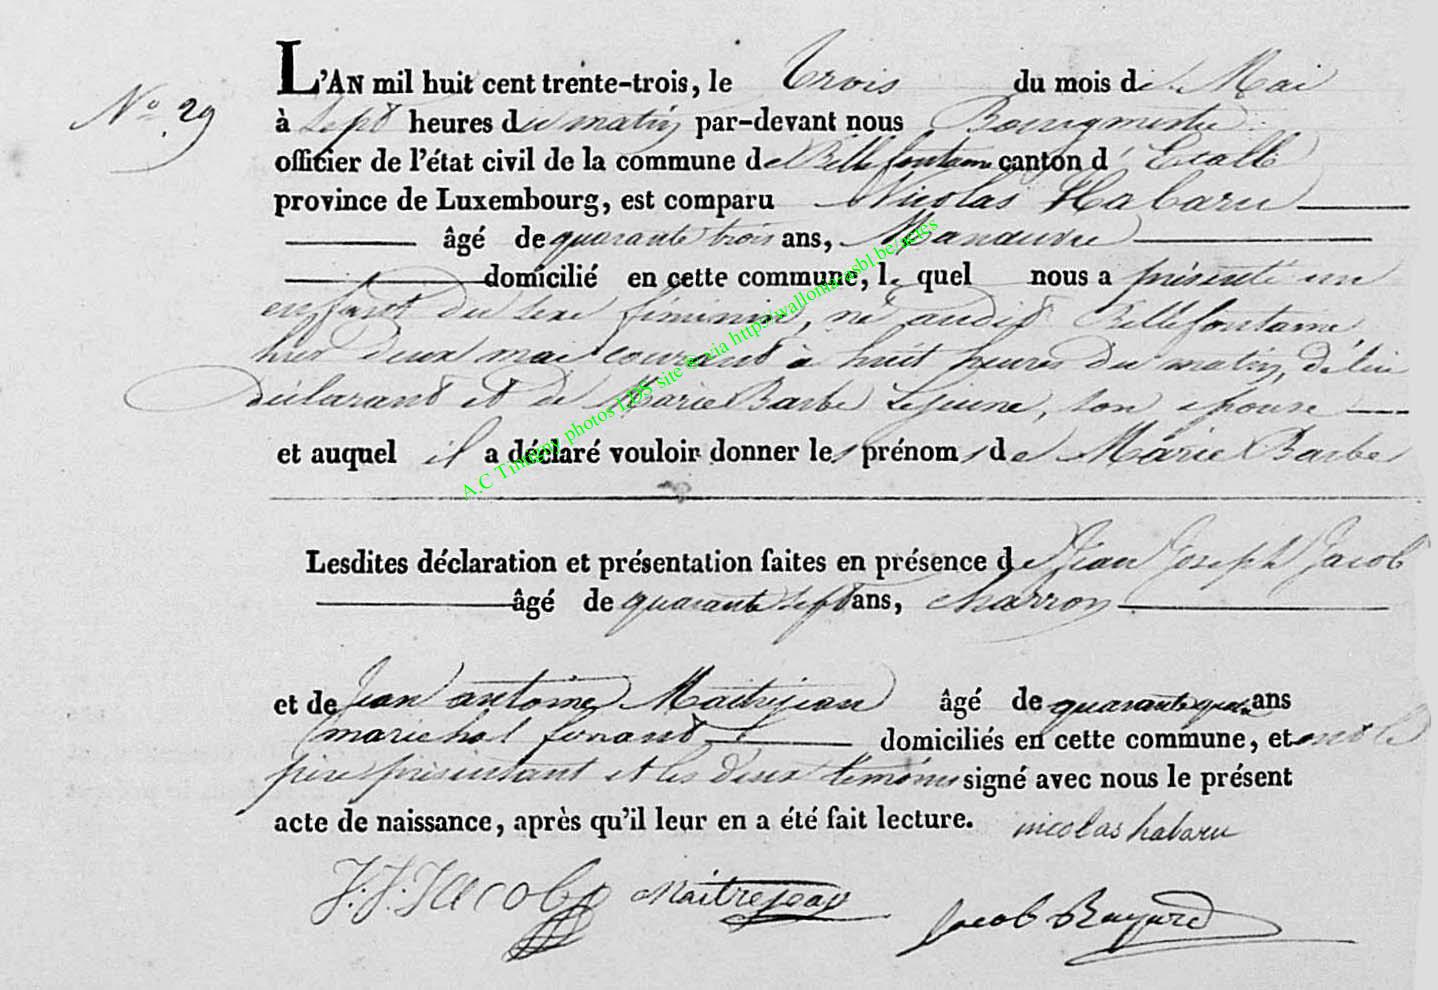 N° 29
L'AN mil huit cent trente-trois, le trois du mois de Mai
à sept heures du matin par-devant nous Bourgmestre
officier de l'état civil de la commune de Bellefontaine canton d'Etalle
province de Luxembourg, est comparu Nicolas Habaru
âgé de quarante trois ans, Manœuvre
domicilié en cette commune, le quel nous a présenté un
enfant du sexe féminin, né audit Bellefontaine
hier deux mai courant à huit heures du matin, de lui
déclarant et de Marie Barbe Lejeune, son épouse
et auquel il a déclaré vouloir donner les prénoms de Marie Barbe
Lesdites déclaration et présentation faites en présence de Jean Joseph Jacob
âgé de quarante sept ans, charron
et de Jean antoine Maitrejean âgé de quarante quatre ans
maréchal ferrant domiciliés en cette commune, et ont le
père présentant et les deux témoins signé avec nous le présent
acte de naissance, après qu'il leur en a été fait lecture. nicolas habaru
J.J. Jacob Maitrejean Jacob Bayard
A.C Tintigny photos LDS site via http://wallonia.asbl.be/actes